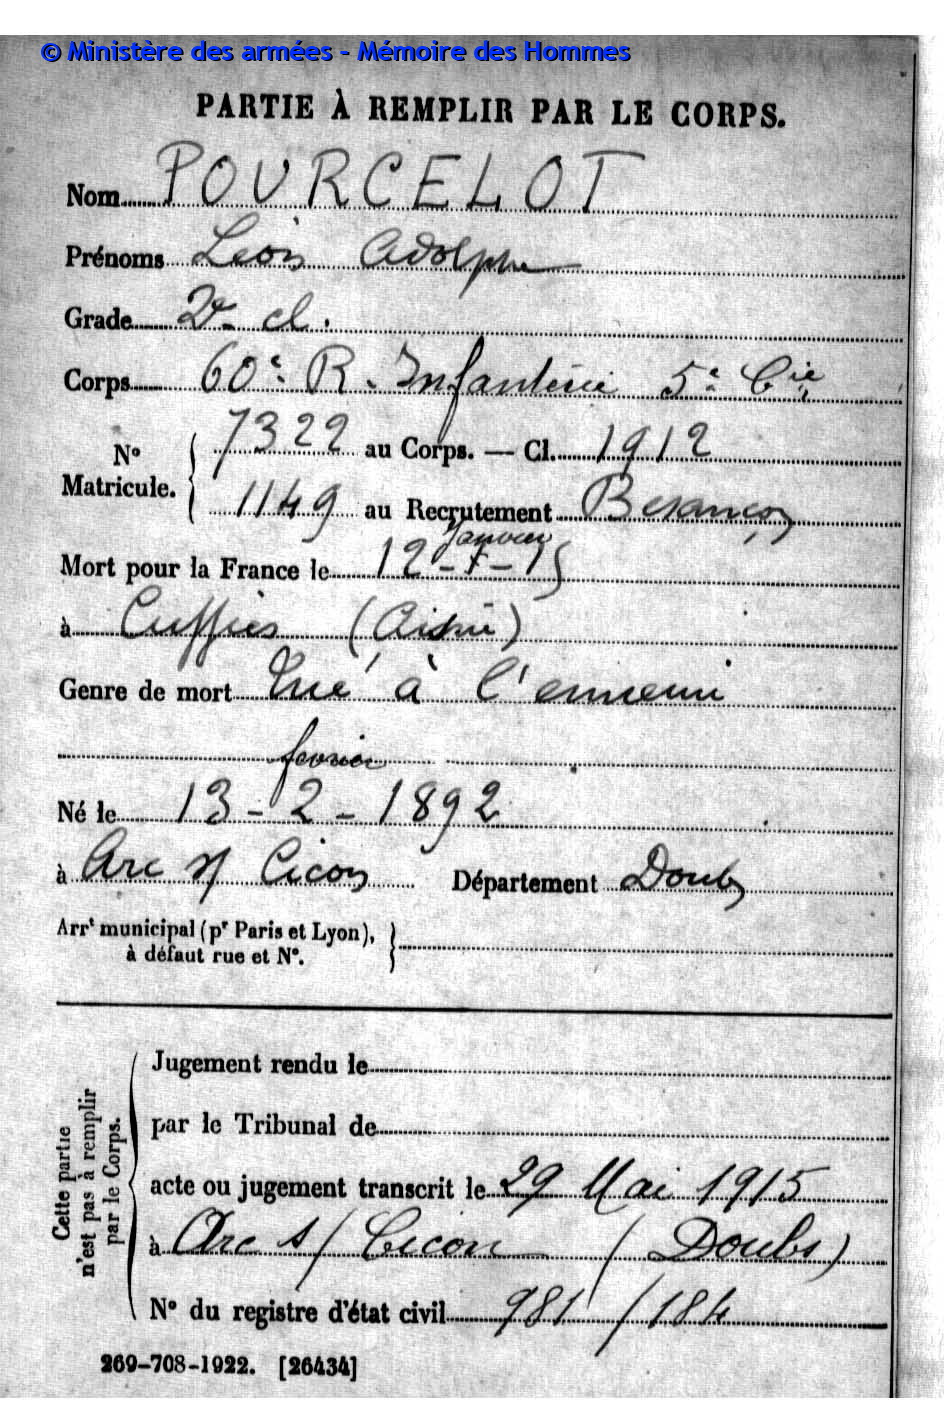 © Ministère des armées - Mémoire des Hommes
PARTIE À REMPLIR PAR LE CORPS.
Nom POURCELOT
Prénoms Léon Adolphe
Grade 2e cl.
Corps 60e R. Infanterie 5e Cie
No Matricule. 7322 au Corps. — Cl. 1912
1149 au Recrutement Besançon
janvier
Mort pour la France le 12-1-15
à Cuffies (Aisne)
Genre de mort Tué à l'ennemi
fevrier
Né le 13-2-1892
à Arc s/ Cicon Département Doubs
Arrt municipal (pr Paris et Lyon),
à défaut rue et No.
Cette partie
n'est pas à remplir
par le Corps.
Jugement rendu le
par le Tribunal de
acte ou jugement transcrit le 29 Mai 1915
à Arc s/ Cicon (Doubs)
No du registre d'état civil 981/184
269-708-1922. [26434]